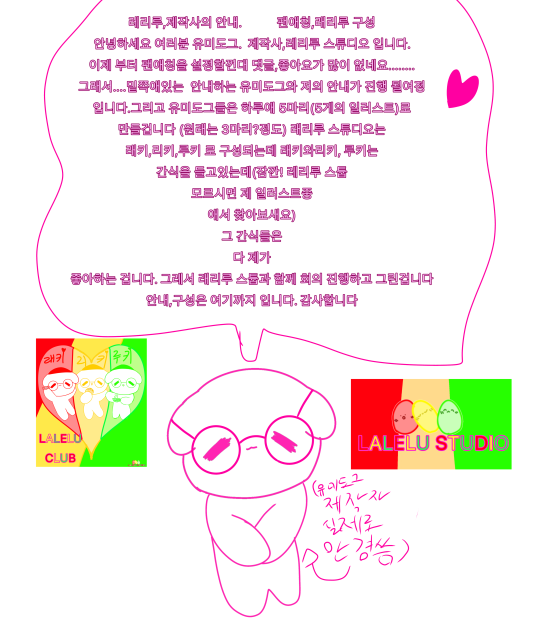 래리루,제작사의 안내. 팬애칭,래리루 구성
안녕하세요 여러분 유미도그. 제작사,래리루 스튜디오 입니다.
이제 부터 팬애칭을 설정할껀대 댓글,좋아요가 많이 없네요........
그래서....밑쪽에있는 안내하는 유미도그와 저의 안내가 진행 될여정
입니다.그리고 유미도그들은 하루에 5마리(5개의 일러스트)로
만들겁니다 (원래는 3마리?정도) 래리루 스튜디오는
래키,리키,루키 로 구성되는데 래키와리키, 루키는
간식을 들고있는데(잠깐! 래리루 스룹
모르시면 제 일러스트중
에서 찾아보세요)
그 간식들은
다 제가
좋아하는 겁니다. 그래서 래리루 스룹과 함께 회의 진행하고 그린겁니다
안내,구성은 여기까지 입니다. 감사합니다
래키 리키 루키
LALELU
CLUB
LALELU STUDIO
(유미도그
제작자
실제로
안경씀)